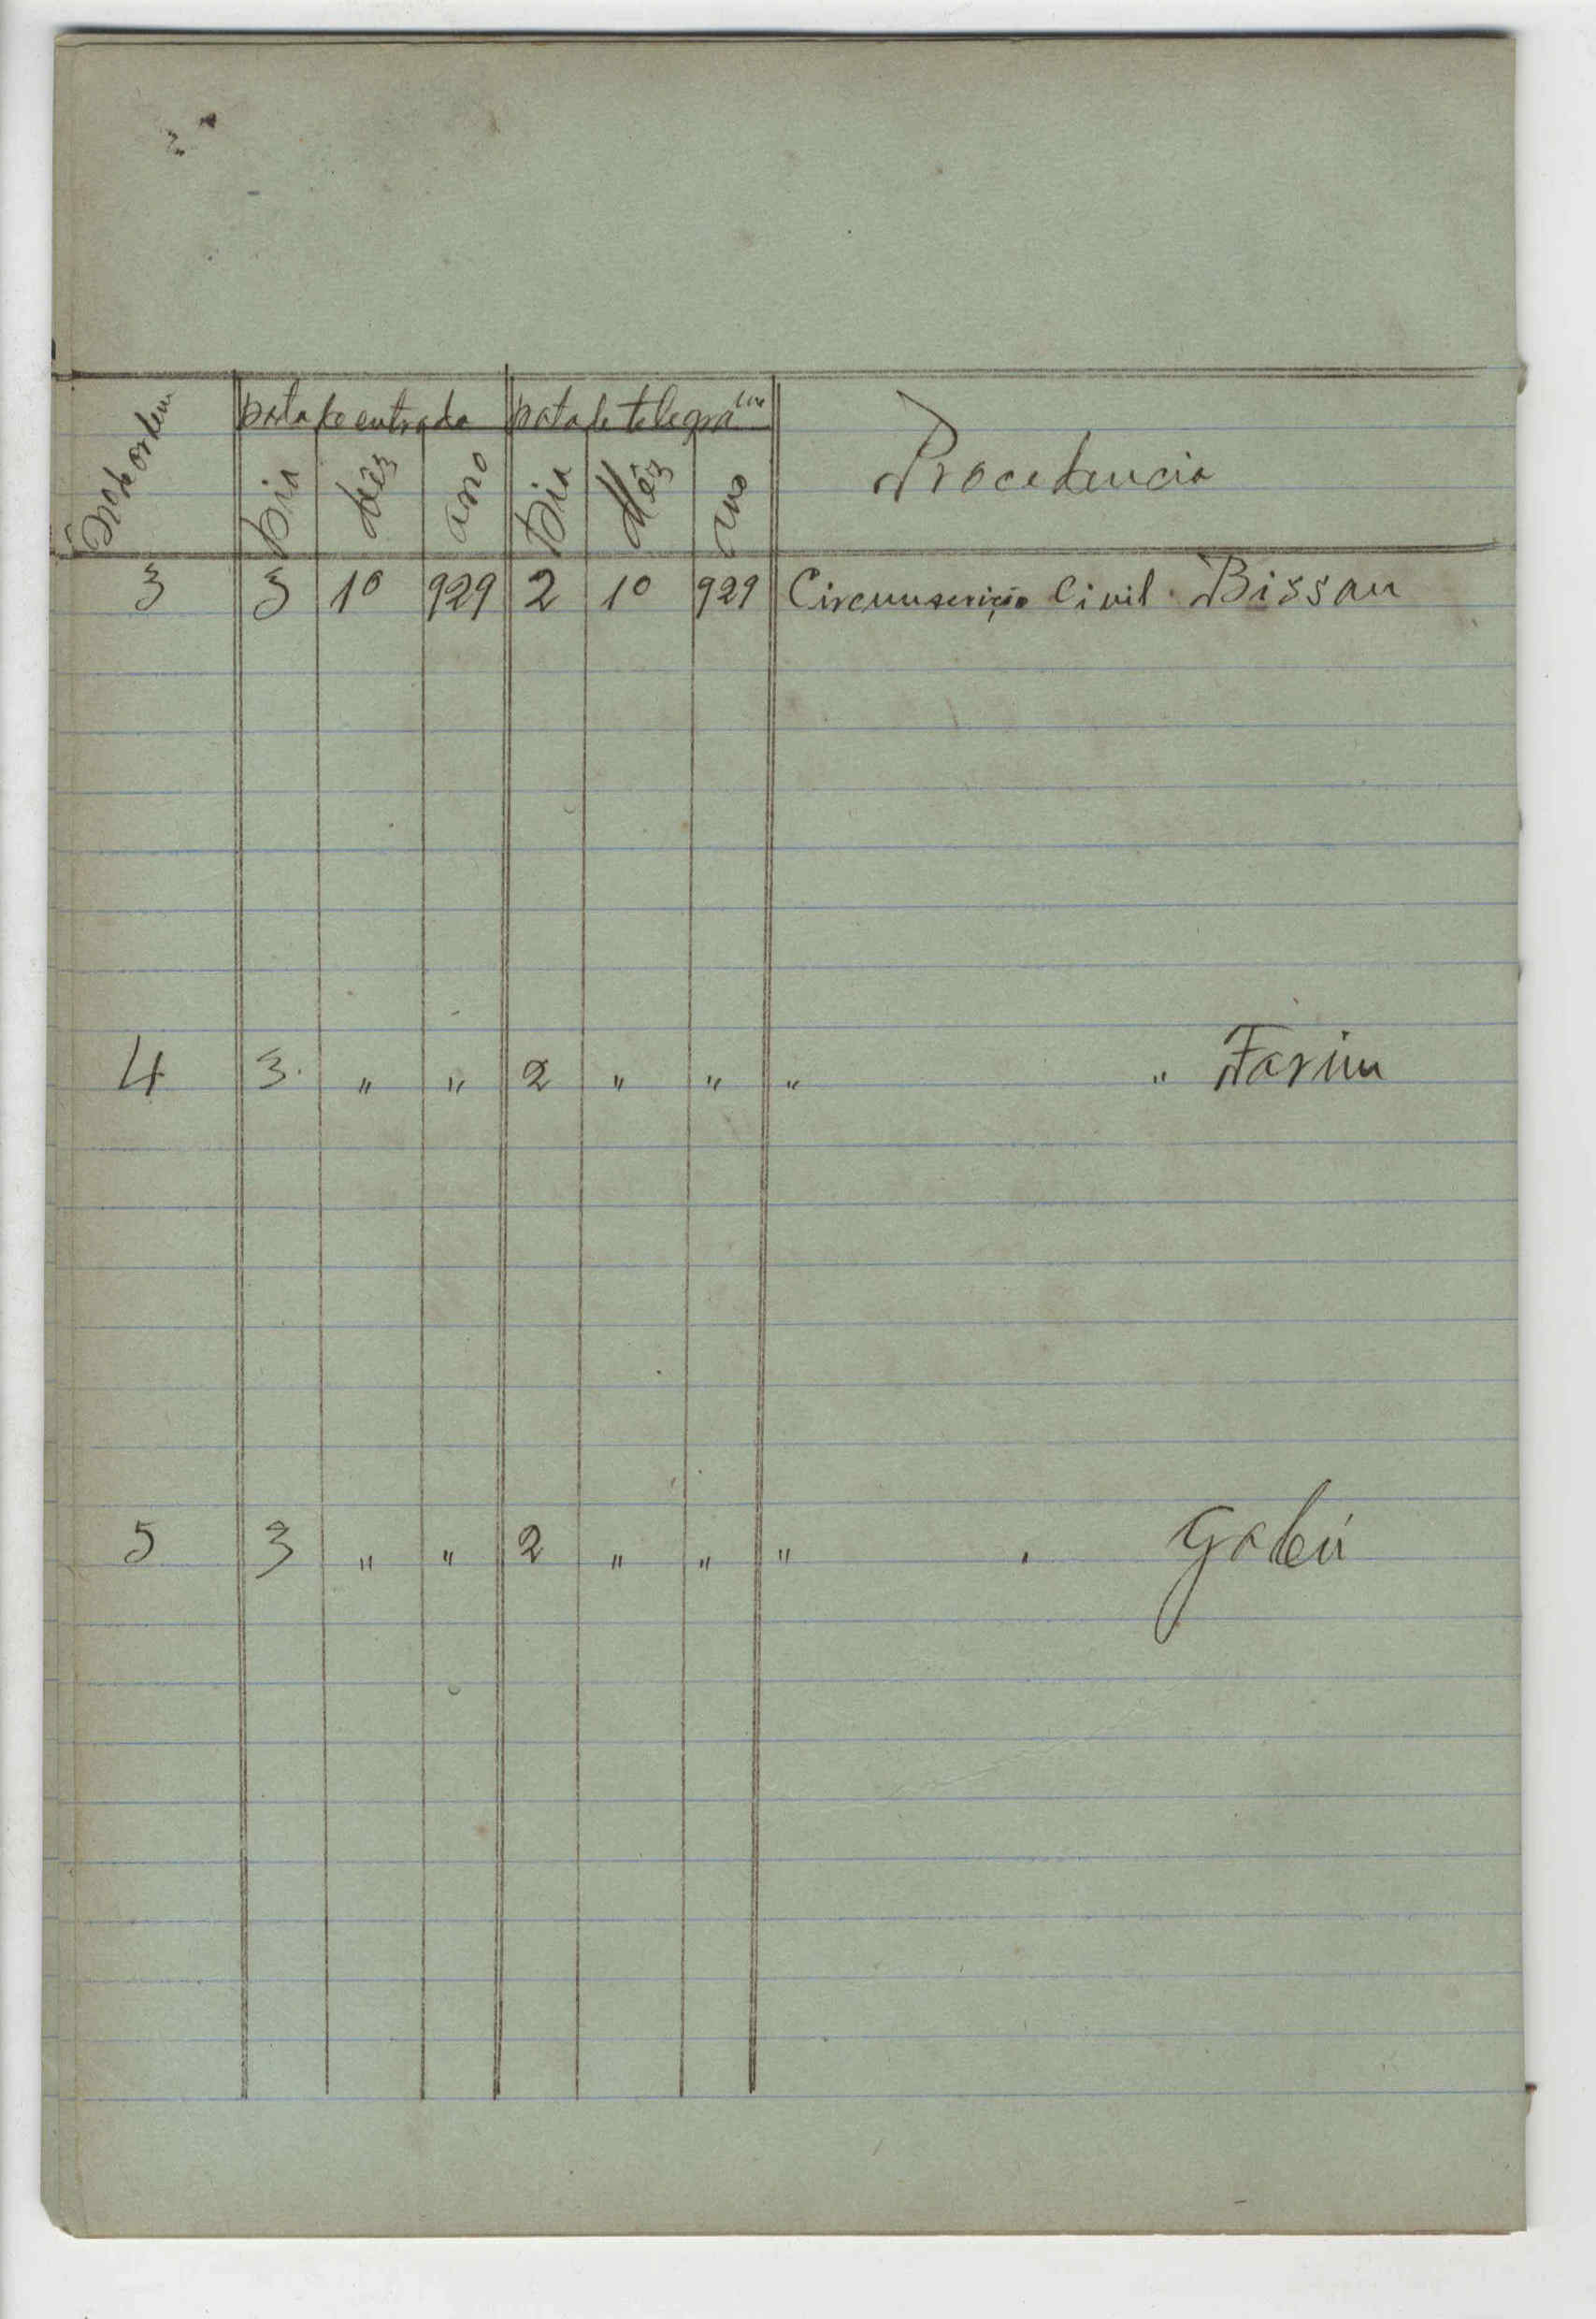 Nº de ordem Data de entrada Data de telegrama Procedencia
Dia Mês ano Dia Mês ano
3 3 10 929 2 10 929 Circunscrição Civil Bissau
4 3 " " 2 " " " " Farim
5 3 " " 2 " " " " Gabú